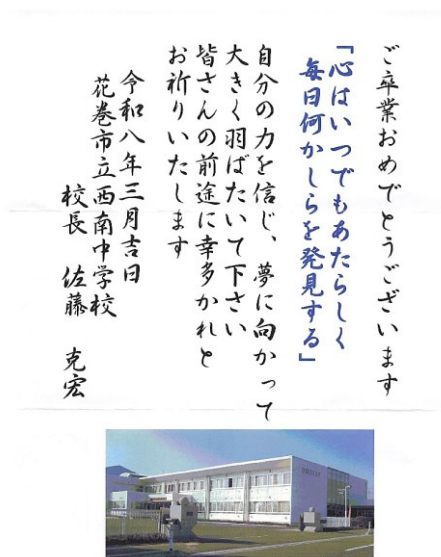 ご卒業おめでとうございます
「心はいつでもあたらしく
毎日何かしらを発見する」
自分の力を信じ、夢に向かって
大きく羽ばたいて下さい
皆さんの前途に幸多かれと
お祈りいたします
令和八年三月吉日
花巻市立西南中学校
校長 佐藤 克宏